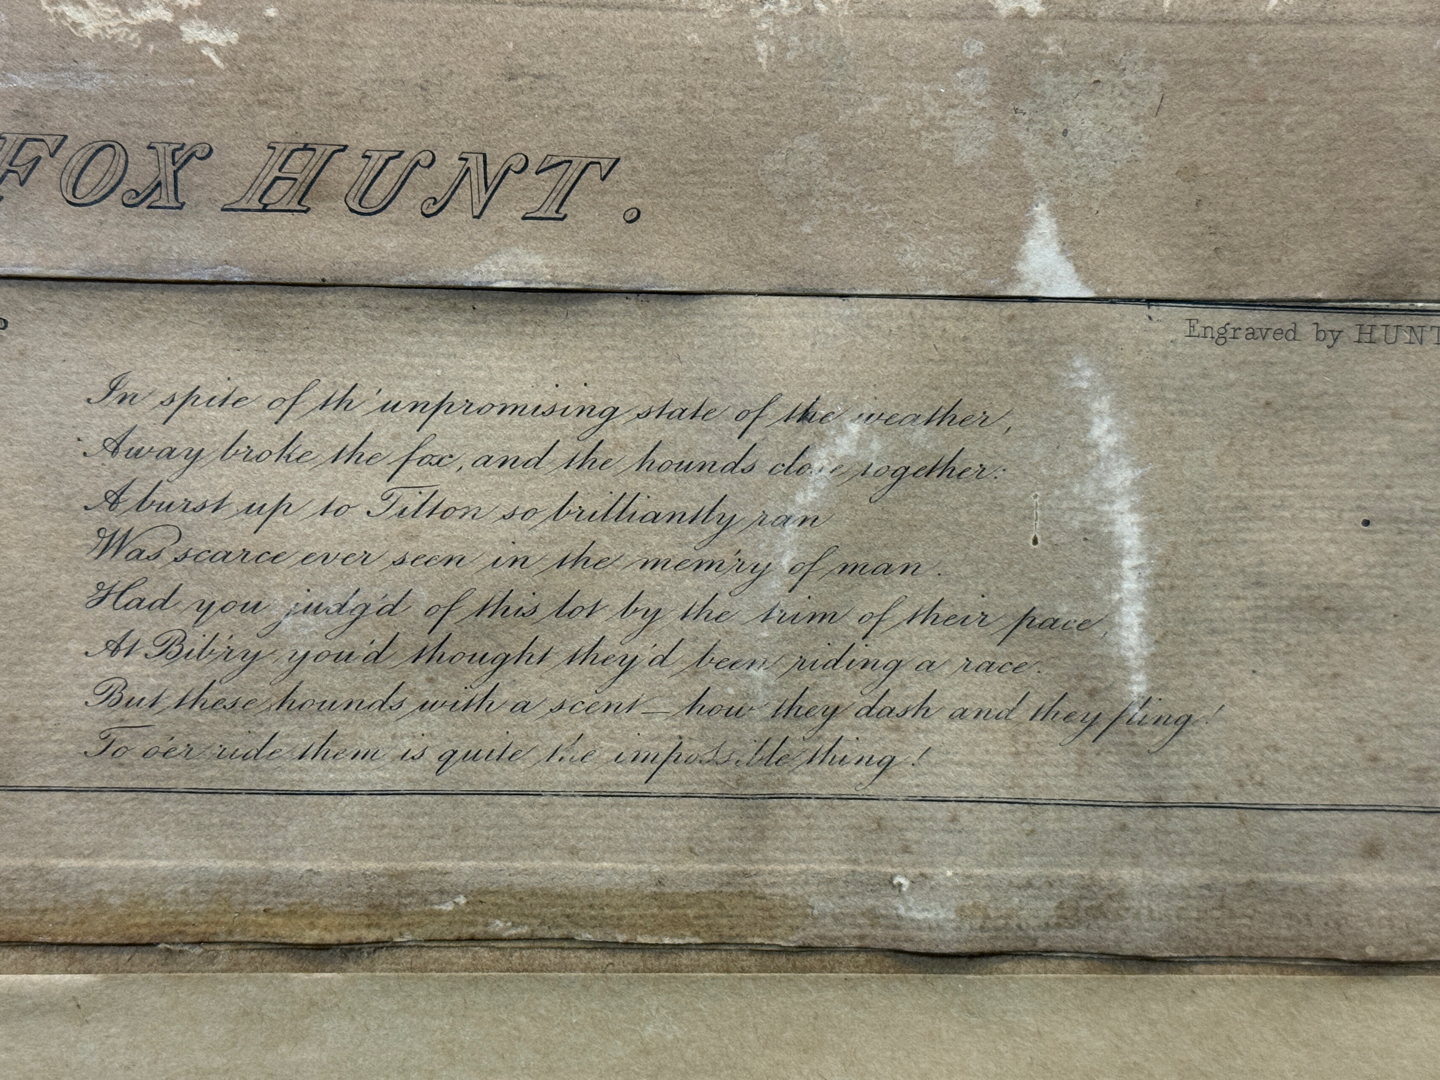 FOX HUNT.
Engraved by HUNT
In spite of th' unpromising state of the weather,
Away broke the fox, and the hounds close together:
A burst up to Tilton so brilliantly ran
Was scarce ever seen in the mem'ry of man.
Had you judg'd of this lot by the trim of their pace,
At Bib'ry you'd thought they'd been riding a race.
But these hounds with a scent — how they dash and they fling!
To o'er ride them is quite the impossible thing!